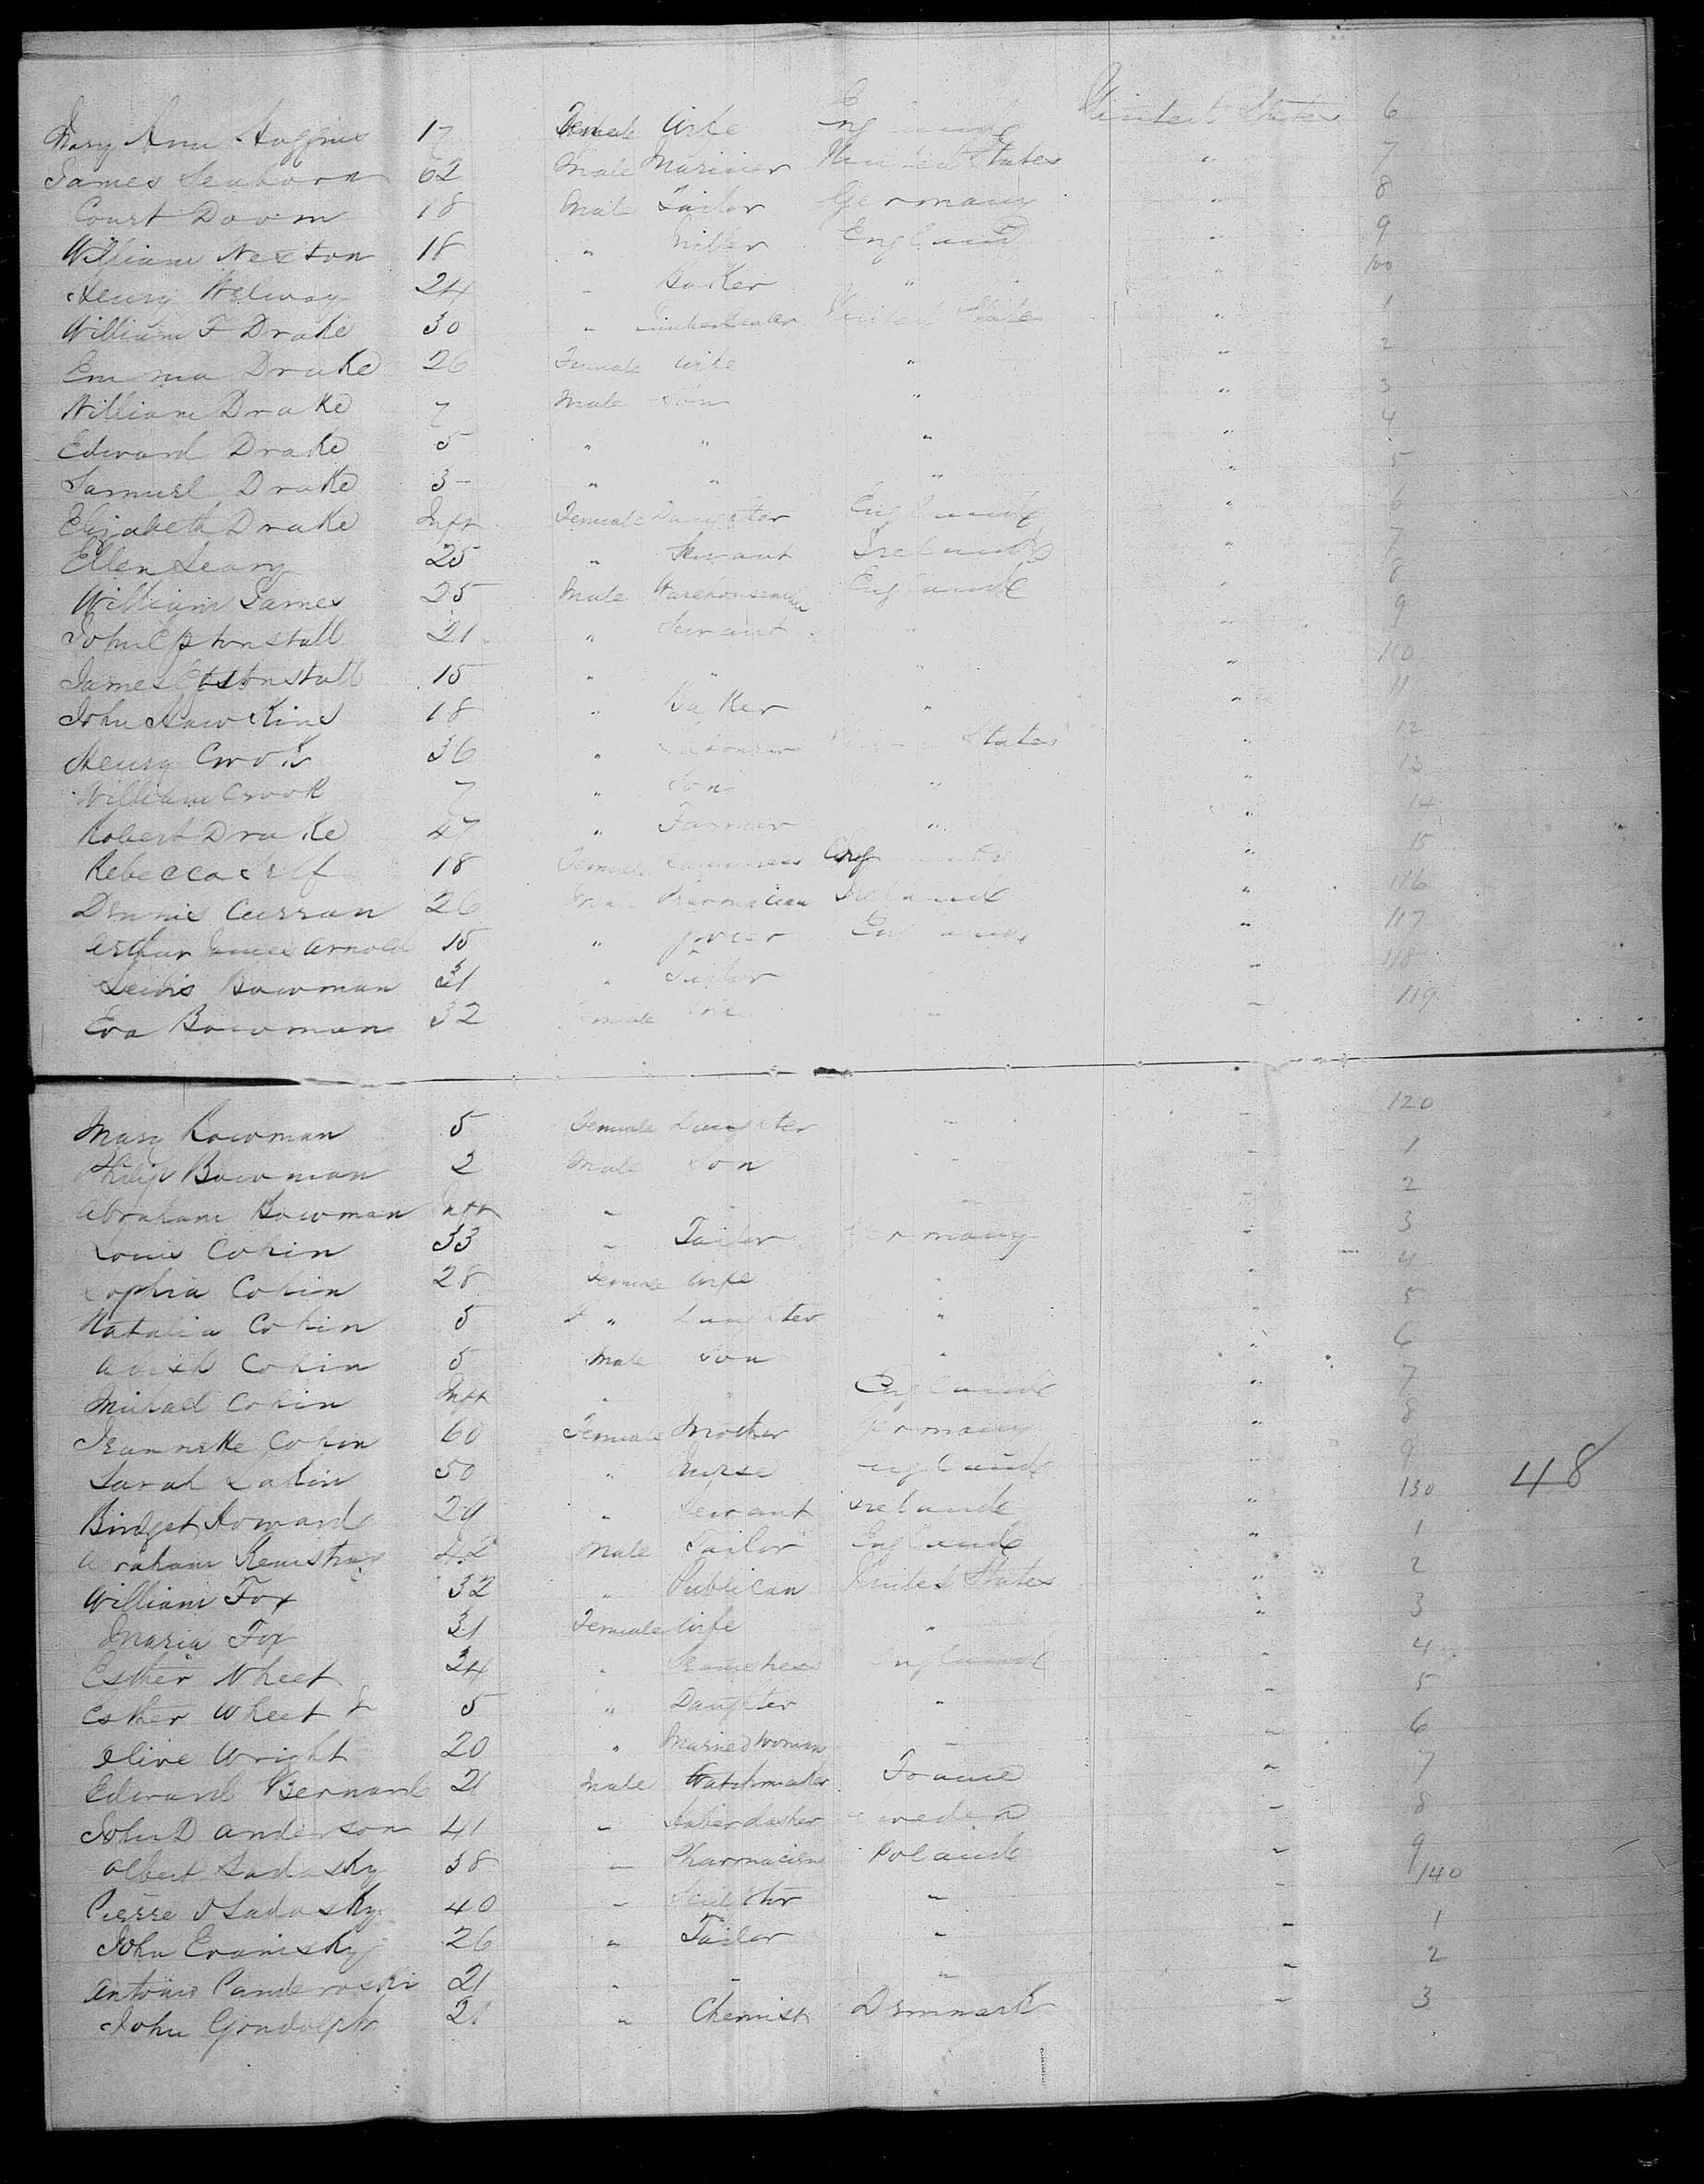 Mary Ann Huggins 17 Female Wife England United States 6
James Seaborn 62 Male Mariner United States " 7
Court Doom 18 Male Tailor Germany " 8
William Nexton 18 " Miller England " 9
Henry Welway 24 " Baker " " 100
William F Drake 30 " United States " 1
Emma Drake 26 Female Wife " " 2
William Drake 7 Male Son " " 3
Edward Drake 5 " " " " 4
Samuel Drake 3 " " " " 5
Elizabeth Drake Inft Female Daughter England " 6
Ellen Leary 25 " Servant Ireland " 7
William James 25 Male Warehouseman England " 8
John Eptonstall 21 " Servant " " 9
James Eptonstall 15 " " " " 110
John Hawkins 18 " Baker " " 11
Henry Crook 36 " Labourer States " 12
William Crook 7 " Son " " 13
Robert Drake 47 " Farmer " " 14
Rebecca Self 18 Female England " 15
Dennis Curran 26 Male Ireland " 116
Arthur James Arnold 15 " Grocer England " 117
Lewis Bowman 31 " Tailor " " 118
Eva Bowman 32 Female Wife " " 119
Mary Bowman 5 Female Daughter " " 120
Philip Bowman 2 Male Son " " 1
Abraham Bowman Inft " " " " 2
Louis Cohin 33 " Tailor Germany " 3
Sophia Cohin 28 Female Wife " " 4
Natalia Cohin 5 " Daughter " " 5
Cohin 5 Male Son " " 6
Michael Cohin Inft " " England " 7
Jeannette Cohin 60 Female Mother Germany " 8
Sarah Lakin 50 " Nurse England " 9
Bridget Howard 29 " Servant Ireland " 130 48
Abraham 42 Male Tailor England " 1
William Fox 32 " Publican United States " 2
Maria Fox 31 Female Wife " " 3
Esther Wheet 34 " Seamstress England " 4
Esther Wheet 5 " Daughter " " 5
Olive Wright 20 " Married Woman " " 6
Edward Bernard 21 Male Watchmaker France " 7
John D Anderson 41 " Haberdasher Sweden " 8
Albert Sadasky 38 " Pharmacien Poland " 9
Pierre Sadasky 40 " " " 140
John Evanisky 26 " Tailor " " 1
Antonio Panderoski 21 " " " " 2
John Gondolph 21 " Chemist Denmark " 3